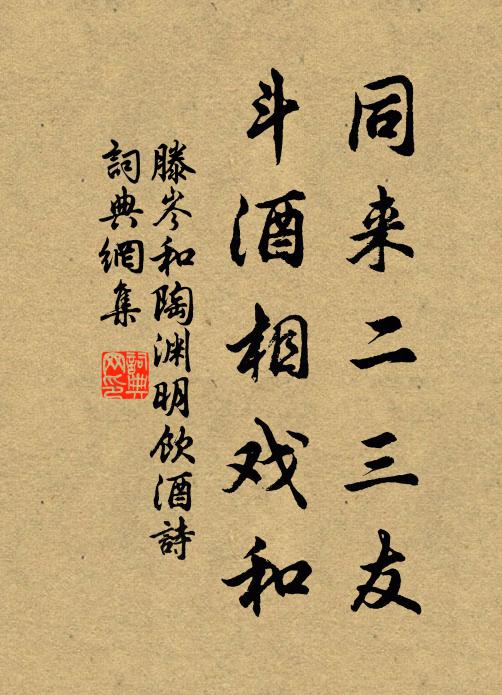 同来二三友
斗酒相戏和
滕岑和陶渊明饮酒詩
詞典網集
詞典网印